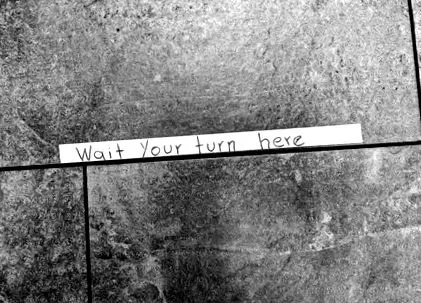 Wait Your turn here